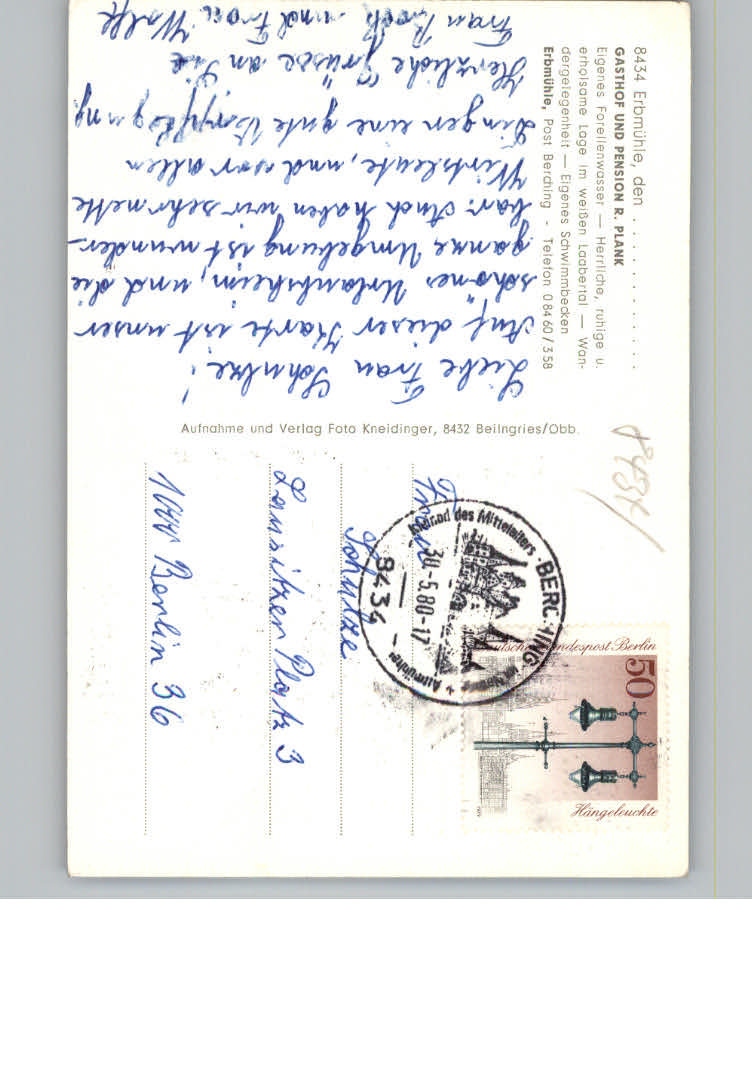 8434 Erbmühle, den . . . . . . . . . . . . . .
GASTHOF UND PENSION R. PLANK
Eigenes Forellenwasser — Herrliche, ruhige u.
erholsame Lage im weißen Laabertal — Wan-
dergelegenheit — Eigenes Schwimmbecken
Erbmühle, Post Berching - Telefon 0 84 60 / 3 58
Liebe Frau Schulze!
Auf dieser Karte ist unser
schönes Urlaubsheim, und die
ganze Umgebung ist wunder-
bar. Auch haben wir sehr nette
Wirtsleute, und vor allen
Dingen eine gute Verpflegung.
Herzliche Grüsse an Sie
Frau Koch und Frau Wolff
Aufnahme und Verlag Foto Kneidinger, 8432 Beilngries/Obb.
8434
Deutsche Bundespost Berlin
50
Hängeleuchte
8434
BERCHING
Kleinod des Mittelalters
30.-5.80-17
Frau
Schulze
Lausitzer Platz 3
1000 Berlin 36